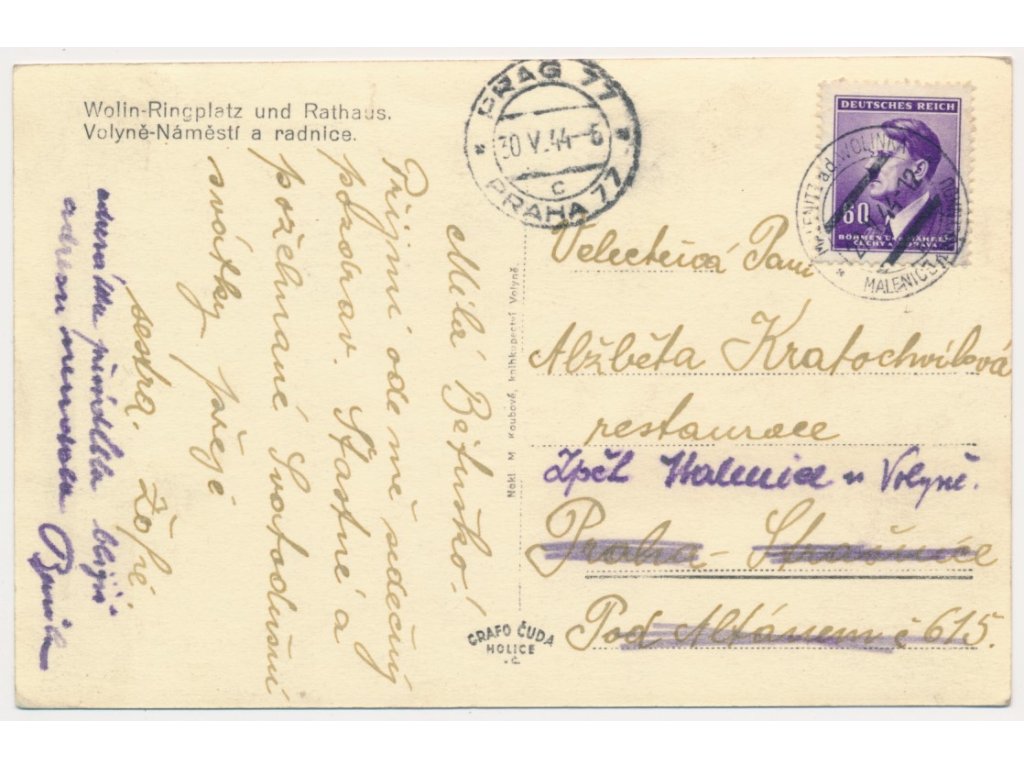 Wolin-Ringplatz und Rathaus.
Volyně-Náměstí a radnice.
PRAG 77
30 V. 44-6
c
PRAHA 77
DEUTSCHES REICH
60
BÖHMEN UND MÄHREN
ČECHY A MORAVA
a.d. WOLINKA
MALENICE
Milá Bětuško!
Přijmi ode mě srdečný
pozdrav. Šťastné a
požehnané Svatodušní
svátky přeje
sestra. Žofie
Velectěná Paní
Alžběta Kratochvílová
restaurace
Zpět Malenice u Volyně.
Praha - Strašnice
Pod Altánem č 615.
Nakl. M. Koubové, knihkupectví Volyně
GRAFO ČUDA
HOLICE